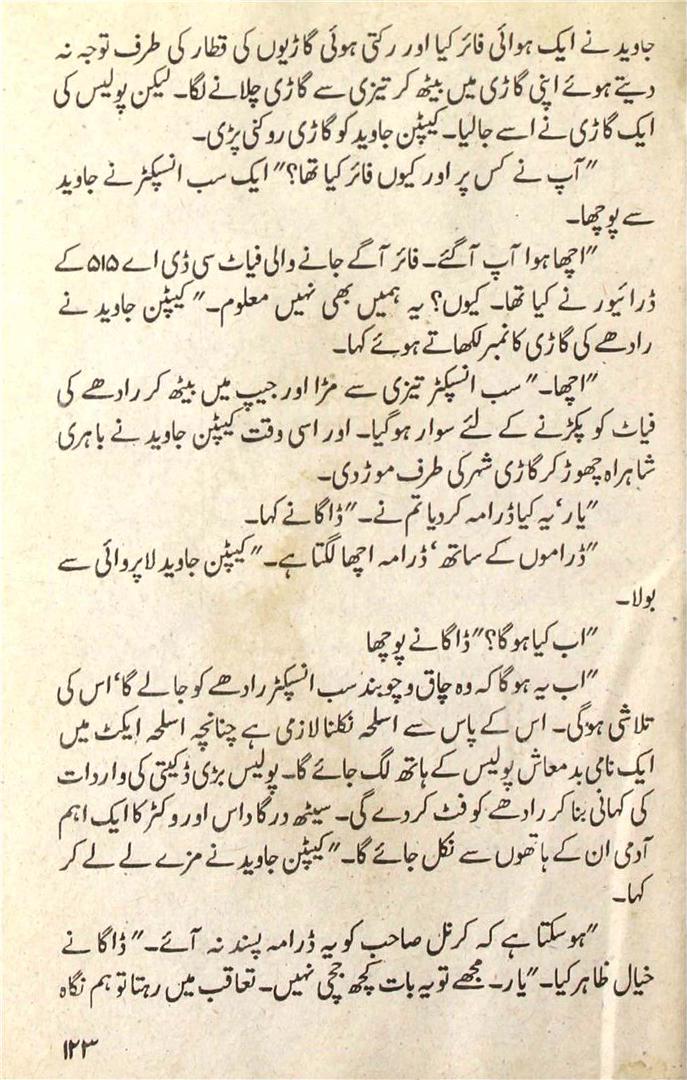 جاوید نے ایک ہوائی فائر کیا اور رکتی ہوئی گاڑیوں کی قطار کی طرف توجہ نہ
دیتے ہوئے اپنی گاڑی میں بیٹھ کر تیزی سے گاڑی چلانے لگا۔ لیکن پولیس کی
ایک گاڑی نے اسے جالیا۔ کیپٹن جاوید کو گاڑی روکنی پڑی۔
"آپ نے کس پر اور کیوں فائر کیا تھا؟" ایک سب انسپکٹر نے جاوید
سے پوچھا۔
"اچھا ہوا آپ آگئے۔ فائر آگے جانے والی فیاٹ سی ڈی اے ۵۱۵ کے
ڈرائیور نے کیا تھا۔ کیوں؟ یہ ہمیں بھی نہیں معلوم۔" کیپٹن جاوید نے
رادھے کی گاڑی کا نمبر لکھاتے ہوئے کہا۔
"اچھا۔" سب انسپکٹر تیزی سے مڑا اور جیپ میں بیٹھ کر رادھے کی
فیاٹ کو پکڑنے کے لئے سوار ہوگیا۔ اور اسی وقت کیپٹن جاوید نے باہری
شاہراہ چھوڑ کر گاڑی شہر کی طرف موڑ دی۔
"یار' یہ کیا ڈرامہ کردیا تم نے۔" ڈاگا نے کہا۔
"ڈراموں کے ساتھ' ڈرامہ اچھا لگتا ہے۔" کیپٹن جاوید لاپروائی سے
بولا۔
"اب کیا ہوگا؟" ڈاگا نے پوچھا
"اب یہ ہوگا کہ وہ چاق و چوبند سب انسپکٹر رادھے کو جالے گا' اس کی
تلاشی ہوگی۔ اس کے پاس سے اسلحہ نکلنا لازمی ہے چنانچہ اسلحہ ایکٹ میں
ایک نامی بدمعاش پولیس کے ہاتھ لگ جائے گا۔ پولیس بڑی ڈکیتی کی واردات
کی کہانی بنا کر رادھے کو فٹ کردے گی۔ سیٹھ درگا داس اور وکٹر کا ایک اہم
آدمی ان کے ہاتھوں سے نکل جائے گا۔" کیپٹن جاوید نے مزے لے لے کر
کہا۔
"ہوسکتا ہے کہ کرنل صاحب کو یہ ڈرامہ پسند نہ آئے۔" ڈاگا نے
خیال ظاہر کیا۔ "یار۔ مجھے تو یہ بات کچھ جچی نہیں۔ تعاقب میں رہتا تو ہم نگاہ
۱۲۳